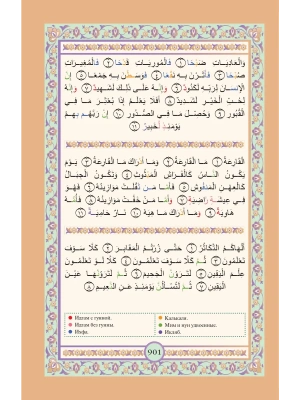 وَالْعَادِيَاتِ ضَبْحًا ۝١ فَالْمُورِيَاتِ قَدْحًا ۝٢ فَالْمُغِيرَاتِ
صُبْحًا ۝٣ فَأَثَرْنَ بِهِ نَقْعًا ۝٤ فَوَسَطْنَ بِهِ جَمْعًا ۝٥ إِنَّ
الْإِنسَانَ لِرَبِّهِ لَكَنُودٌ ۝٦ وَإِنَّهُ عَلَى ذَلِكَ لَشَهِيدٌ ۝٧ وَإِنَّهُ
لِحُبِّ الْخَيْرِ لَشَدِيدٌ ۝٨ أَفَلَا يَعْلَمُ إِذَا بُعْثِرَ مَا فِي
الْقُبُورِ ۝٩ وَحُصِّلَ مَا فِي الصُّدُورِ ۝١٠ إِنَّ رَبَّهُم بِهِمْ
يَوْمَئِذٍ لَّخَبِيرٌ ۝١١
الْقَارِعَةُ ۝١ مَا الْقَارِعَةُ ۝٢ وَمَا أَدْرَاكَ مَا الْقَارِعَةُ ۝٣ يَوْمَ
يَكُونُ النَّاسُ كَالْفَرَاشِ الْمَبْثُوثِ ۝٤ وَتَكُونُ الْجِبَالُ
كَالْعِهْنِ الْمَنفُوشِ ۝٥ فَأَمَّا مَن ثَقُلَتْ مَوَازِينُهُ ۝٦ فَهُوَ
فِي عِيشَةٍ رَاضِيَةٍ ۝٧ وَأَمَّا مَنْ خَفَّتْ مَوَازِينُهُ ۝٨ فَأُمُّهُ
هَاوِيَةٌ ۝٩ وَمَا أَدْرَاكَ مَا هِيَهْ ۝١٠ نَارٌ حَامِيَةٌ ۝١١
أَلْهَاكُمُ التَّكَاثُرُ ۝١ حَتَّى زُرْتُمُ الْمَقَابِرَ ۝٢ كَلَّا سَوْفَ
تَعْلَمُونَ ۝٣ ثُمَّ كَلَّا سَوْفَ تَعْلَمُونَ ۝٤ كَلَّا لَوْ تَعْلَمُونَ
عِلْمَ الْيَقِينِ ۝٥ لَتَرَوُنَّ الْجَحِيمَ ۝٦ ثُمَّ لَتَرَوُنَّهَا عَيْنَ
الْيَقِينِ ۝٧ ثُمَّ لَتُسْأَلُنَّ يَوْمَئِذٍ عَنِ النَّعِيمِ ۝٨
Идгам с гунной.
Калькаля.
Идгам без гунны.
Мим и нун удвоенные.
Ихфа.
Иклаб.
901